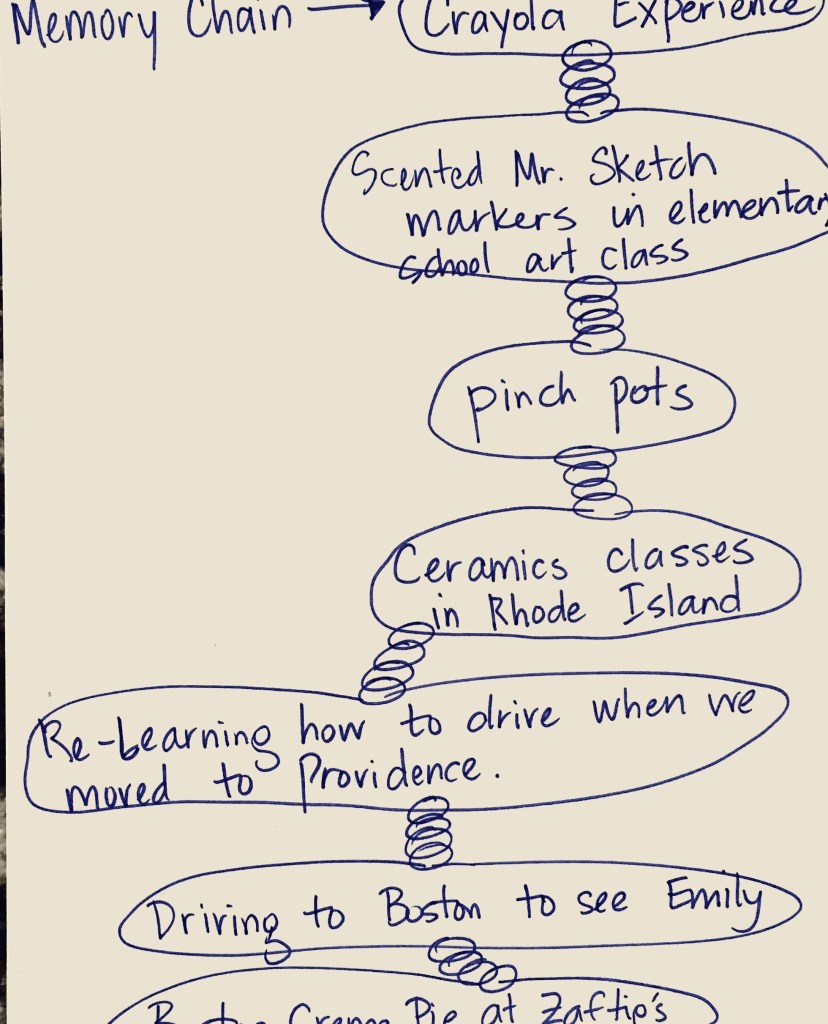 Memory Chain → Crayola Experience
Scented Mr. Sketch
markers in elementar
school art class
pinch pots
Ceramics classes
in Rhode Island
Re-Learning how to drive when we
moved to Providence.
Driving to Boston to see Emily
Pie at Zaftip's